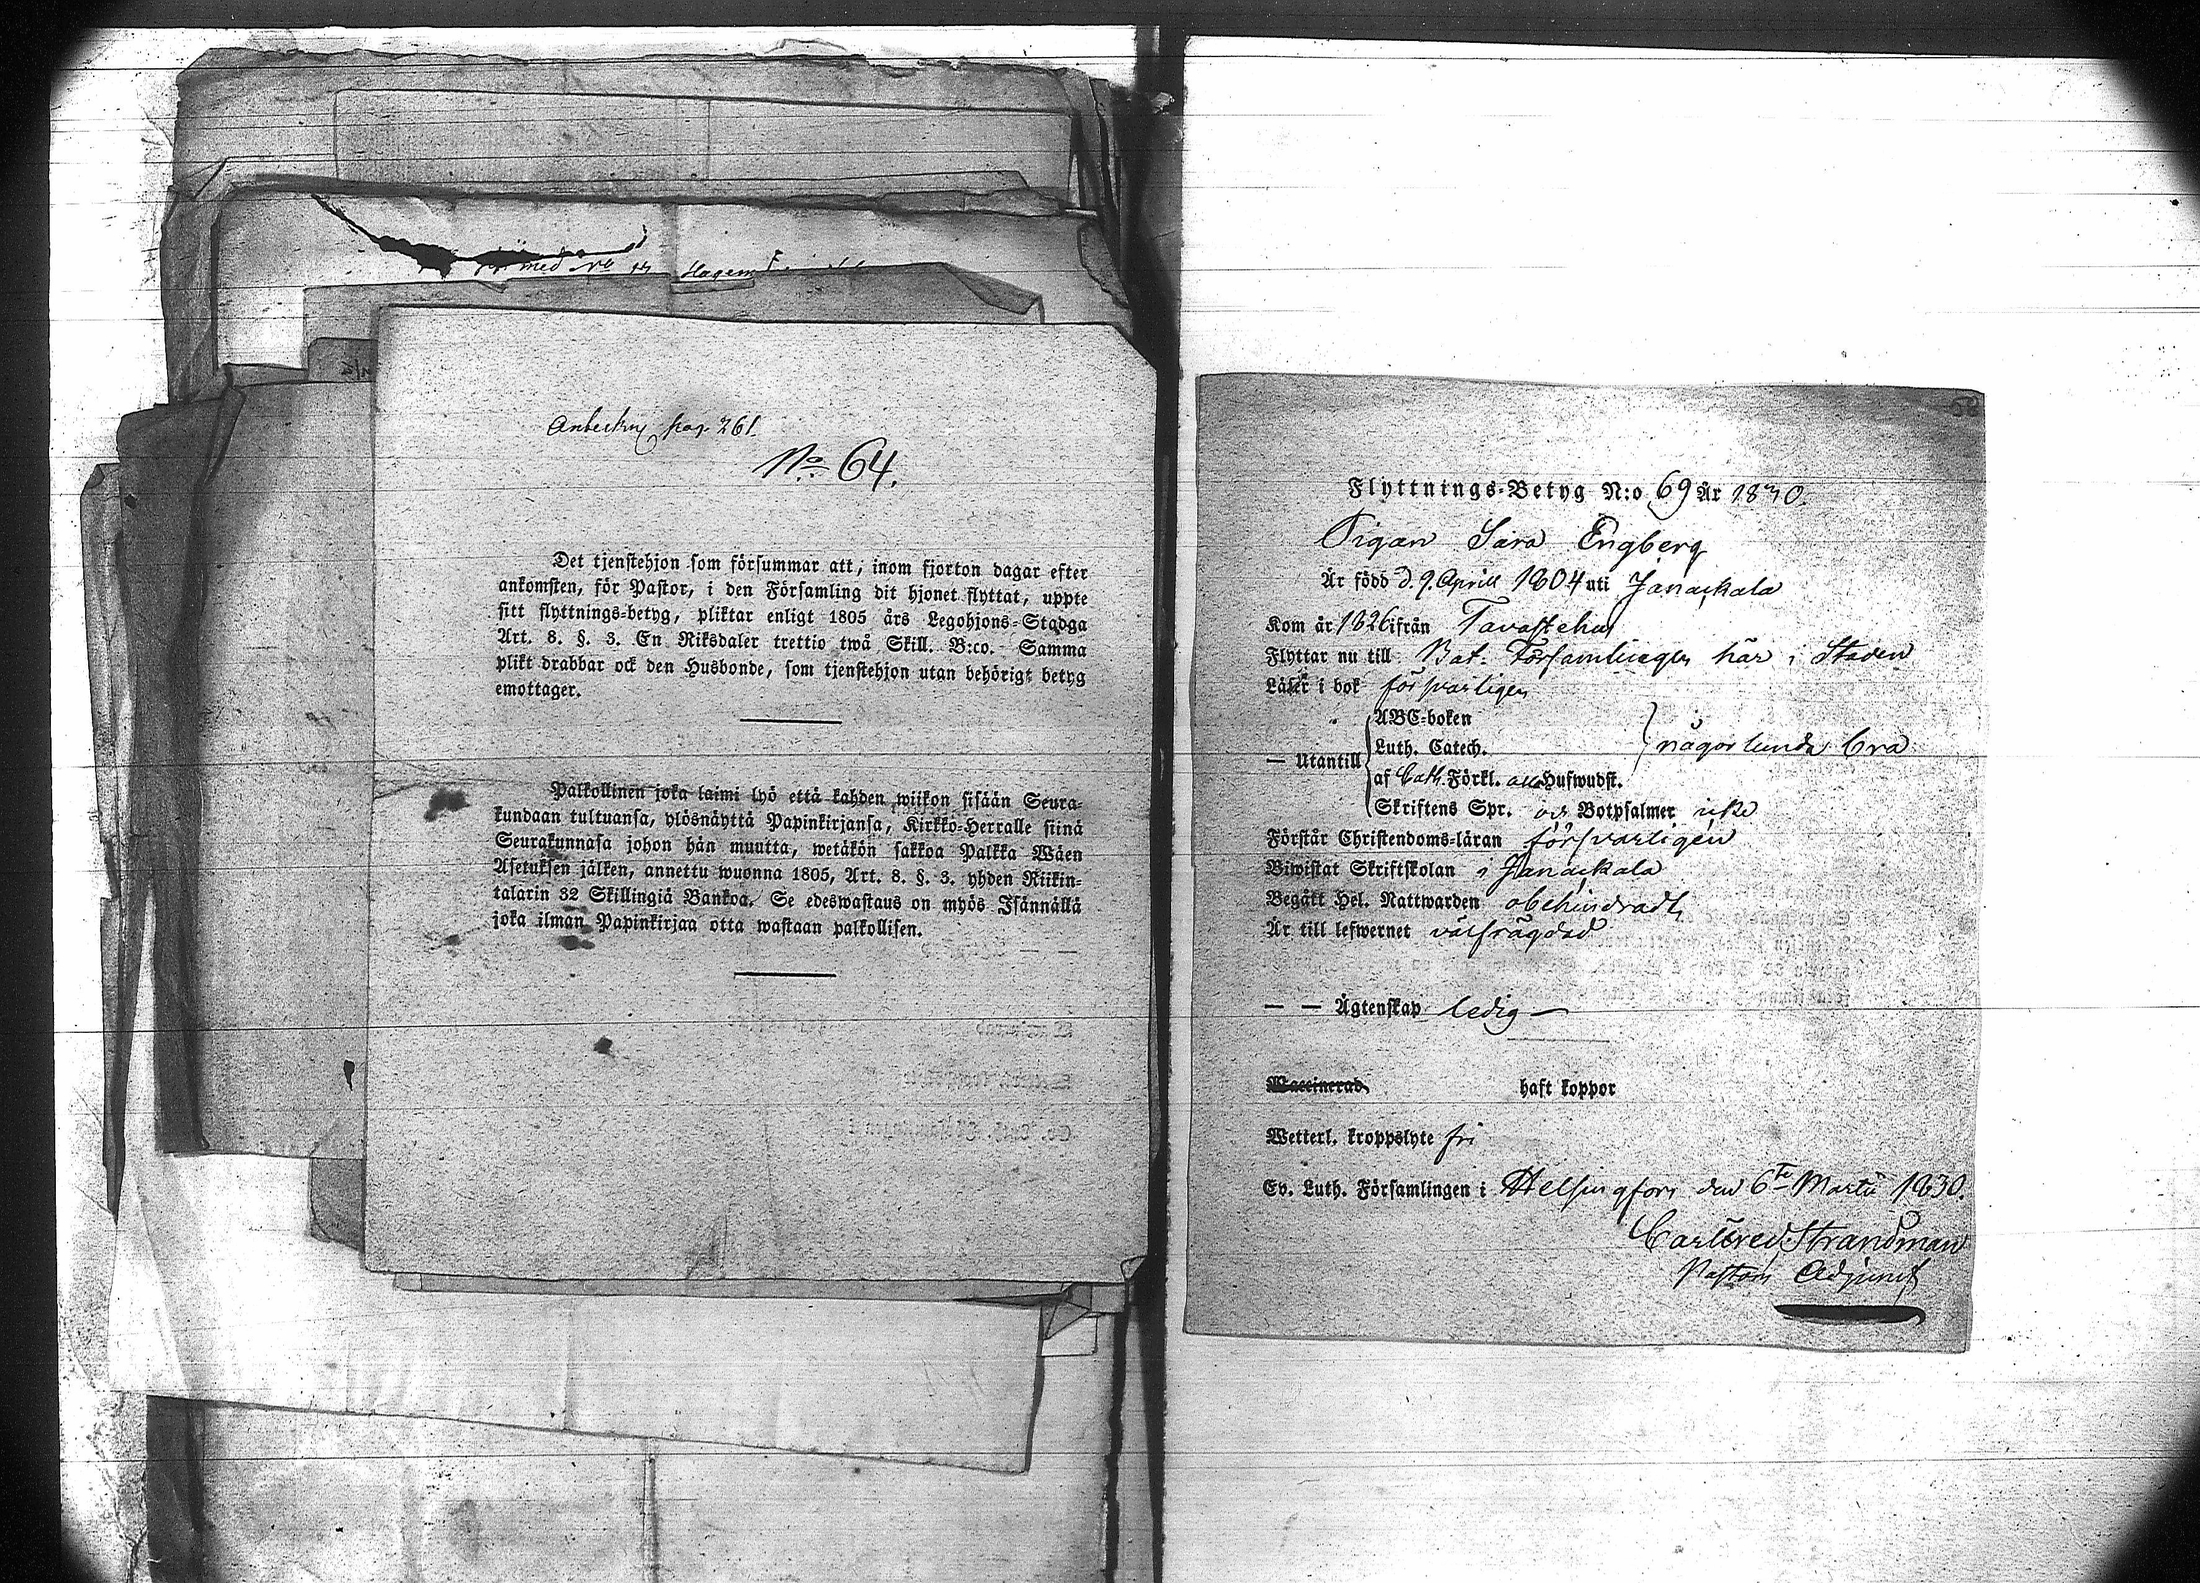 med No
pag. 261.
No 64.
Det tjenstehjon som försummar att, inom fjorton dagar efter
ankomsten, för Pastor, i den Församling dit hjonet flyttat, uppte
sitt flyttnings-betyg, pliktar enligt 1805 års Legohjons-Stadga
Art. 8. §. 3. En Riksdaler trettio twå Skill. B:co. Samma
plikt drabbar ock den Husbonde, som tjenstehjon utan behörigt betyg
emottager.
Palkollinen joka laimi lyö että kahden wiikon sisään Seura-
kundaan tultuansa, ylösnäyttä Papinkirjansa, Kirkko-Herralle siinä
Seurakunnasa johon hän muutta, wetäkön sakkoa Palkka Wäen
Asetuksen jälken, annettu wuonna 1805, Art. 8. §. 3. yhden Riikin-
talarin 32 Skillingiä Bankoa. Se edeswastaus on myös Isännällä
joka ilman Papinkirjaa otta wastaan palkollisen.
Flyttnings-Betyg N:o 69 År 1830.
Pigan Sara Engberg
Är född d. 9. Aprill 1804 uti Janackala
Kom år 1826 ifrån Tavastehus
Flyttar nu till Bat: Församlingen här i Staden
Läser i bok försvarligen
ABC-boken
Luth. Catech. någorlunda bra
— Utantill
af Cath. Förkl. Hufwudst.
Skriftens Spr. och Botpsalmer icke
Förstår Christendoms-läran försvarligen
Biwistat Skriftskolan i Janackala
Begått Hel. Nattwarden obehindradt
Är till lefwernet välfrägdad
— — Ägtenskap ledig —
Waccinerad haft koppor
Wetterl. kroppslyte fri
Ev. Luth. Församlingen i Helsingfors den 6te Martii 1830.
Carl Fred. Strandman
Pastors Adjunct